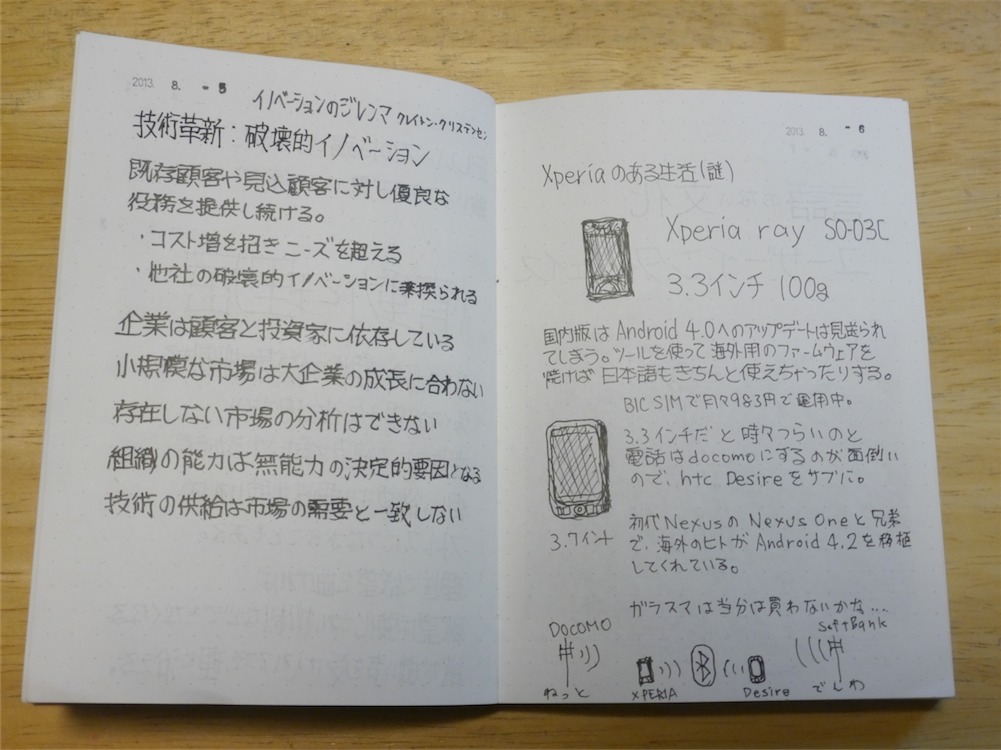 2013. 8. - 5
イノベーションのジレンマ クレイトン・クリステンセン
技術革新：破壊的イノベーション
既存顧客や見込顧客に対し優良な
役務を提供し続ける。
・コスト増を招きニーズを超える
・他社の破壊的イノベーションに乗撰られる
企業は顧客と投資家に依存している
小規模な市場は大企業の成長に合わない
存在しない市場の分析はできない
組織の能力は無能力の決定的要因となる
技術の供給は市場の需要と一致しない
2013. 8. - 6
Xperiaのある生活(謎)
Xperia ray SO-03C
3.3インチ 100g
国内版はAndroid 4.0へのアップデートは見送られ
てしまう。ツールを使って海外用のファームウェアを
焼けば日本語もきちんと使えちゃったりする。
BIC SIMで月々983円で運用中。
3.3インチだと時々つらいのと
電話はdocomoにするのが面倒い
ので、htc Desireをサブに。
3.7インチ
初代NexusのNexus Oneと兄弟
で、海外のヒトがAndroid 4.2を移植
してくれている。
ガラスマは当分は買わないかな...
DOCOMO
SoftBank
ねっと
XPERIA
Desire
でんわ